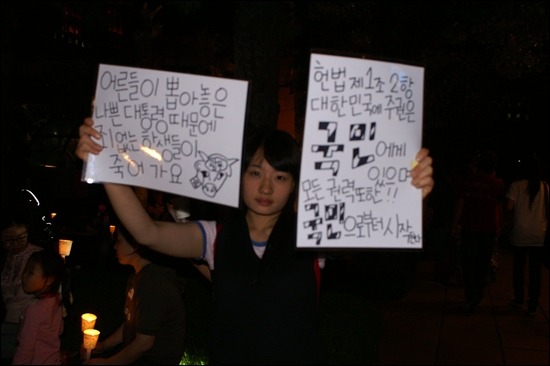 어른들이 뽑아놓은
나쁜 대통령 때문에
죄없는 학생들이
죽어가요
헌법 제1조 2항
대한민국에 주권은
국민에게
있으며
모든 권력또한!!
국민으로부터 시작